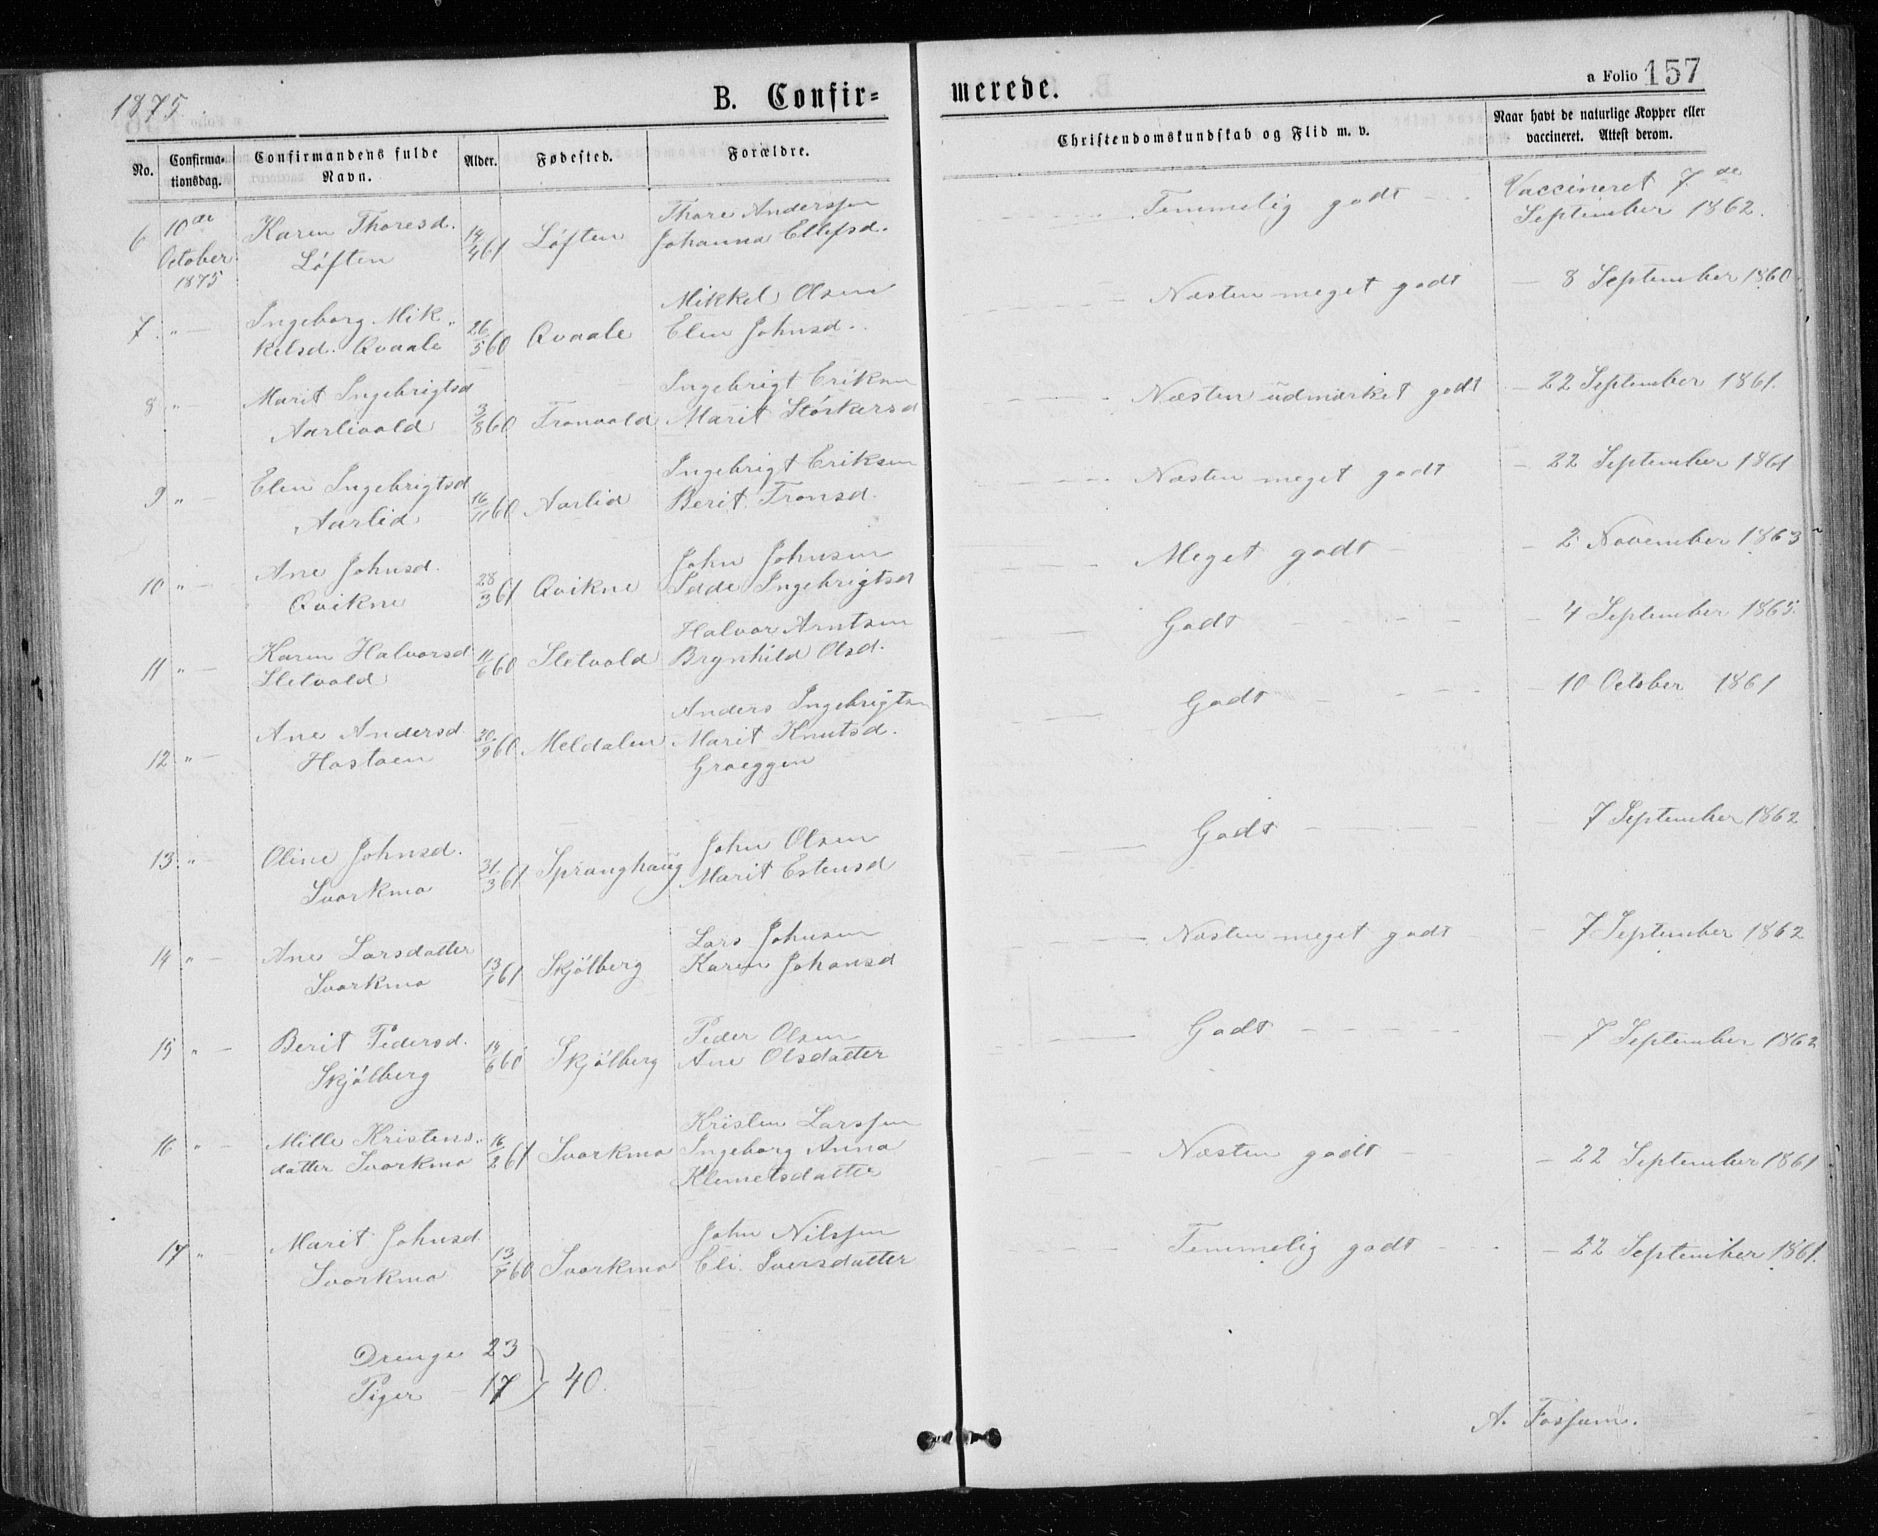 1875.
B. Confir=
merede.
a Folio 157
No.
Confirma-
tionsdag.
Confirmandens fulde
Navn.
Alder.
Fødested.
Forældre.
Christendomskundskab og Flid m. v.
Naar havt de naturlige Kopper eller
vaccineret. Attest derom.
6 10de October 1875
Karen Thoresd.
Løften
14/4 61
Løften
Thore Anderssen
Johanna Ellefsd.
Temmelig godt
Vaccineret 7de
September 1862.
7. " Ingeborg Mik-
kelsd. Qvaale
26/5 60
Qvaale
Mikkel Olsen
Elen Johnsd.
Næsten meget godt
8 September 1860
8 " Marit Ingebrigtsd
Aarlivold
3/8 60
Tronvold
Ingebrigt Eriksen
Marit Størkersd
Næsten udmærket godt
22 September 1861.
9 " Elen Ingebrigtsd
Aarlid
16/11 60
Aarlid
Ingebrigt Eriksen
Berit Tronsd.
Næsten meget godt
22 September 1861
10 " Ane Johnsd.
Qvikne
28/3 61
Qvikne
John Johnsen
Ingebrigtsd
Meget godt
2 November 1863
11 " Karen Halvorsd
Sletvold
11/6 60
Sletvold
Halvor Arntsen
Brynhild Olsd.
Godt
4 September 1865.
12 " Ane Andersd
Hostoen
30/9 60
Meldalen
Anders Ingebrigtsen
Marit Knutsd.
Graeggen
Godt
10 October 1861
13. " Oline Johnsd.
Svorkmo
31/3 61
Spranghaug
John Olsen
Marit Estensd
Godt
7 September 1862
14 " Ane Larsdatter
Svorkmo
13/1 61
Skjølberg
Lars Johnsen
Karen Johansd
Næsten meget godt
7 September 1862
15 " Berit Pedersd.
Skjølberg
14/6 60
Skjølberg
Peder Olsen
Ane Olsdatter
Godt
7 September 1862
16 " Mille Kristens-
datter Svorkmo
16/2 61
Svorkmo
Kristen Larssen
Ingeborg Anna
Klemetsdatter
Næsten godt
22 September 1861
17 " Marit Johnsd
Svorkmo
13/7 60
Svorkmo
John Nilssen
Eli Iversdatter
Temmelig godt
22 September 1861.
Drenge 23
Piger - 17 } 40.
A. Fossum.